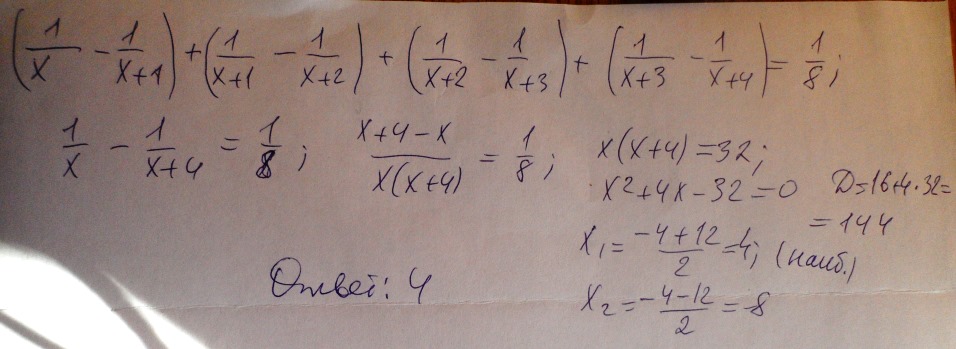 (1/x - 1/(x+1)) + (1/(x+1) - 1/(x+2)) + (1/(x+2) - 1/(x+3)) + (1/(x+3) - 1/(x+4)) = 1/8;
1/x - 1/(x+4) = 1/8; (x+4-x)/(x(x+4)) = 1/8; x(x+4) = 32;
x²+4x-32=0 D=16+4·32=
=144
x₁ = (-4+12)/2 = 4; (наиб.)
Ответ: 4
x₂ = (-4-12)/2 = -8